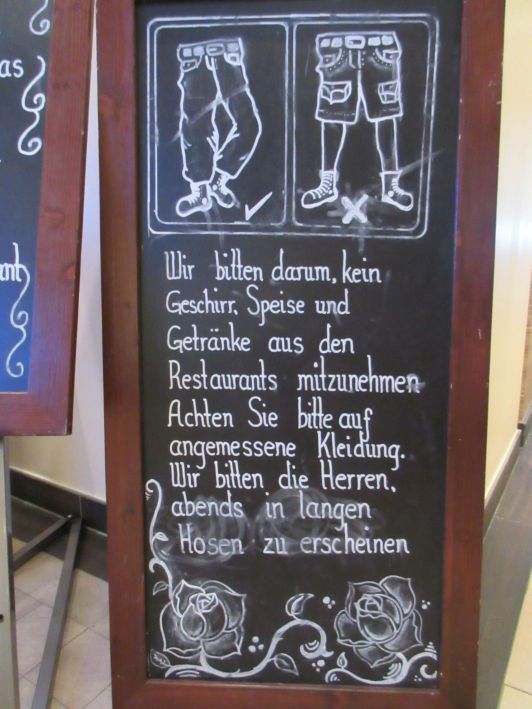 as
ant
Wir bitten darum, kein
Geschirr, Speise und
Getränke aus den
Restaurants mitzunehmen
Achten Sie bitte auf
angemessene Kleidung.
Wir bitten die Herren,
abends in langen
Hosen zu erscheinen